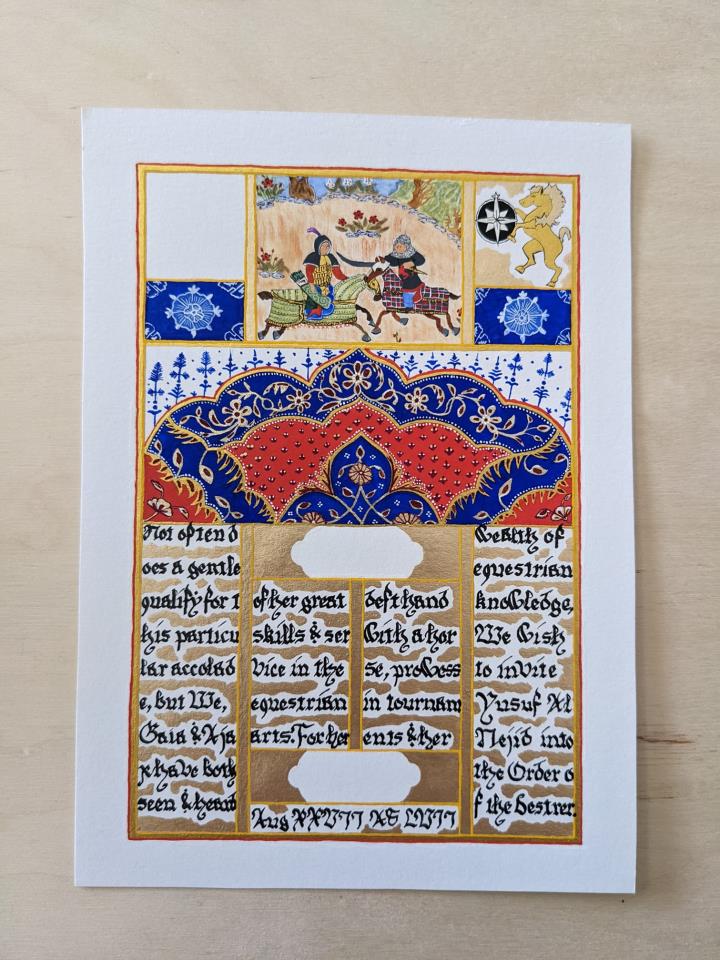 Not often d
oes a gentle
qualify for t
his particu
lar accolad
e, but We,
Gaia & Aja
x have both
seen & heard
of her great
skills & ser
vice in the
equestrian
arts. For her
deft hand
with a hor
se, prowess
in tournam
ents & her
wealth of
equestrian
knowledge,
We wish
to invite
Yusuf Al
Nejid into
the Order o
f the Destrer.
Aug XXVII AS LVII